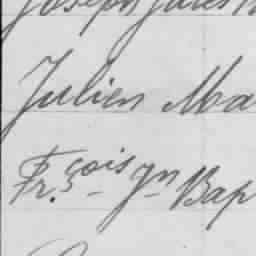 Joseph Jules
Julien Ma
Fr.çois Jn Bap